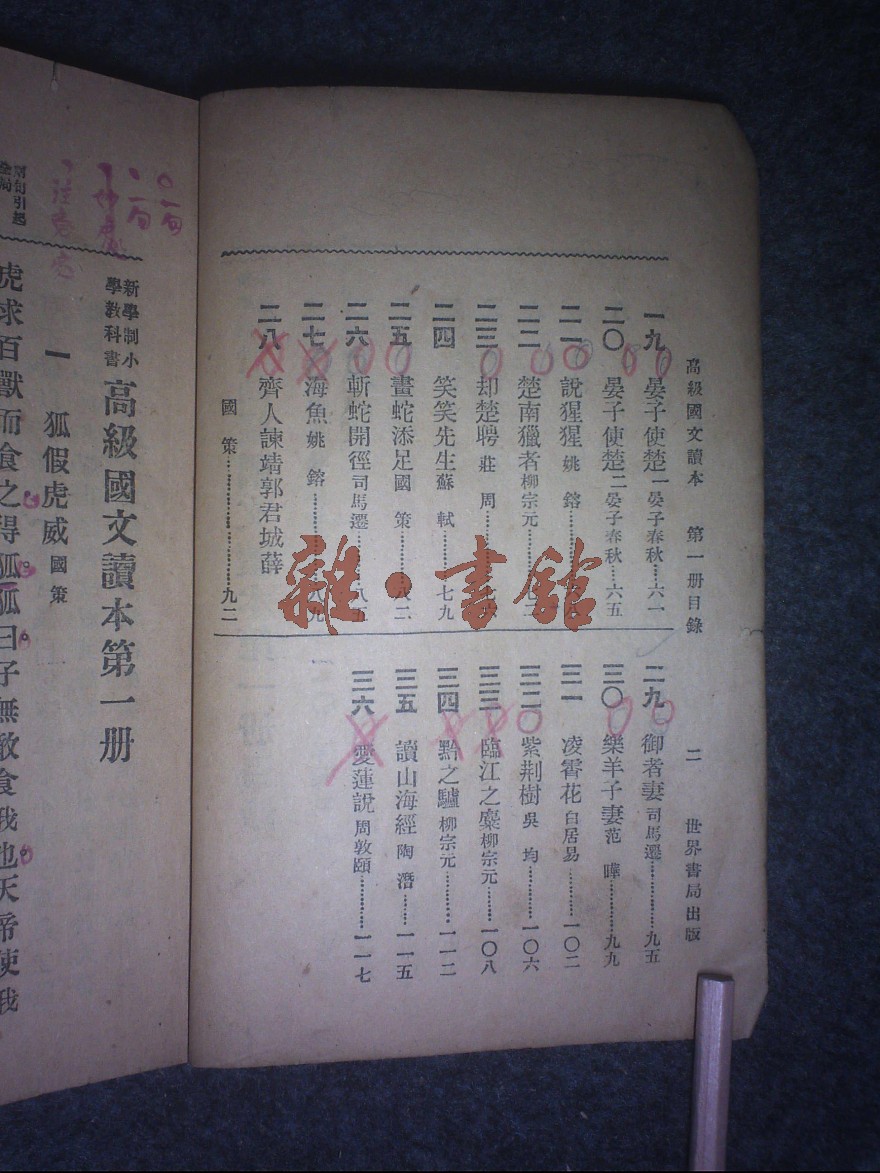 高級國文讀本　第一册目錄　二　世界書局出版
一九　晏子使楚一　晏子春秋………六一
二〇　晏子使楚二　晏子春秋…六五
二一　說猩猩　姚鎔
二二　楚南獵者　柳宗元
二三　却楚聘　莊周
二四　笑笑先生　蘇軾………七九
二五　畫蛇添足　國策………八二
二六　斬蛇開徑　司馬遷………八五
二七　海魚　姚鎔………八九
二八　齊人諫靖郭君城薛
國策………九二
二九　御者妻　司馬遷………九五
三〇　樂羊子妻　范曄………九九
三一　凌霄花　白居易………一〇二
三二　紫荆樹　吳均………一〇六
三三　臨江之麋　柳宗元………一〇八
三四　黔之驢　柳宗元………一一二
三五　讀山海經　陶潛………一一五
三六　愛蓮說　周敦頤………一一七
雜·書館
〇一句
、一句
新學制小學教科書　高級國文讀本第一册
一　狐假虎威　國策
虎求百獸而食之得狐狐曰子無敢食我也天帝使我